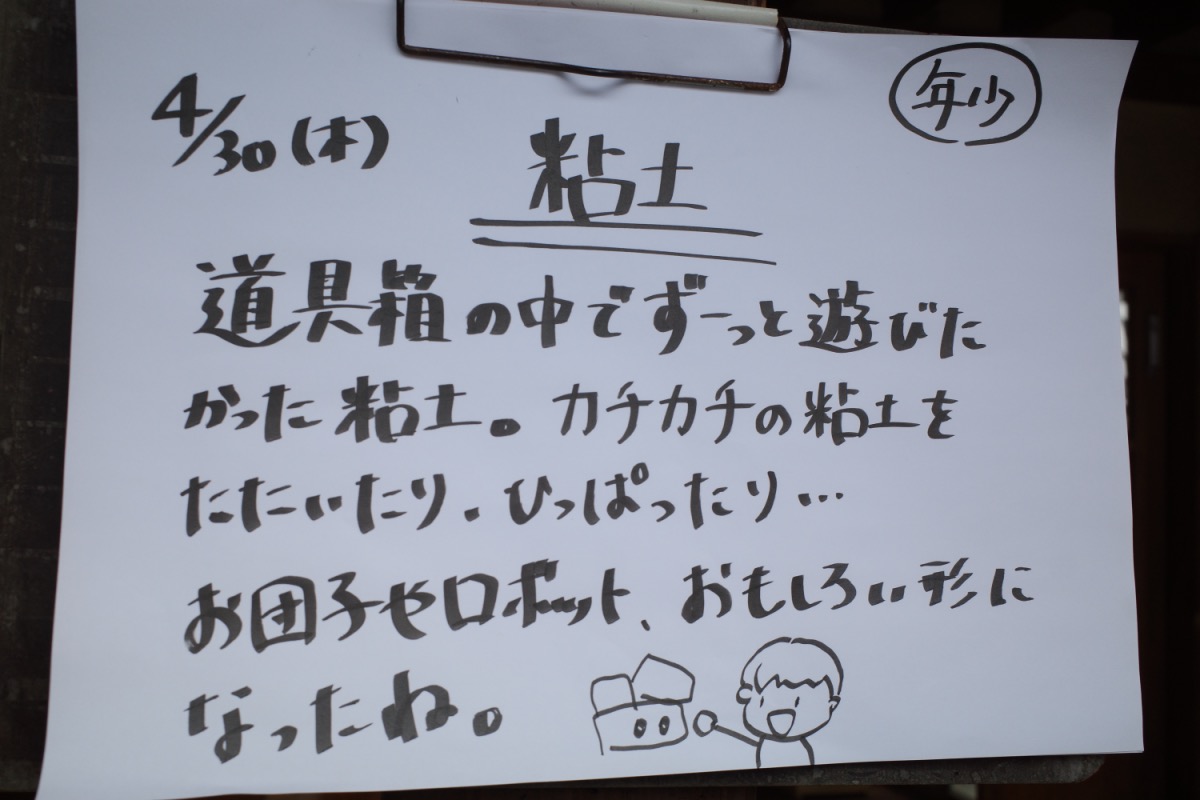 4/30(木)
年少
粘土
道具箱の中でずーっと遊びた
かった粘土。カチカチの粘土を
たたいたり、ひっぱったり…
お団子やロボット、おもしろい形に
なったね。